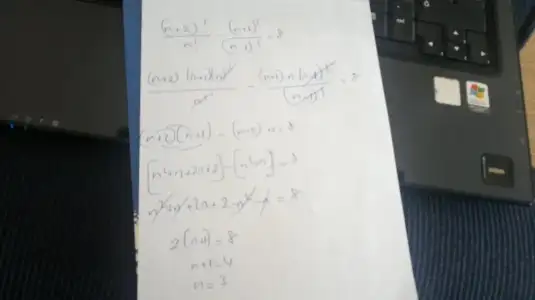 (n+2)!/n! - (n+1)!/(n-1)! = 8
(n+2)(n+1)n!/n! - (n+1)n(n-1)!/(n-1)! = 8
(n+2)(n+1) - (n+1)n = 8
[n²+n+2n+2] - [n²+n] = 8
n²+n+2n+2-n²-n = 8
2(n+1) = 8
n+1=4
n=3